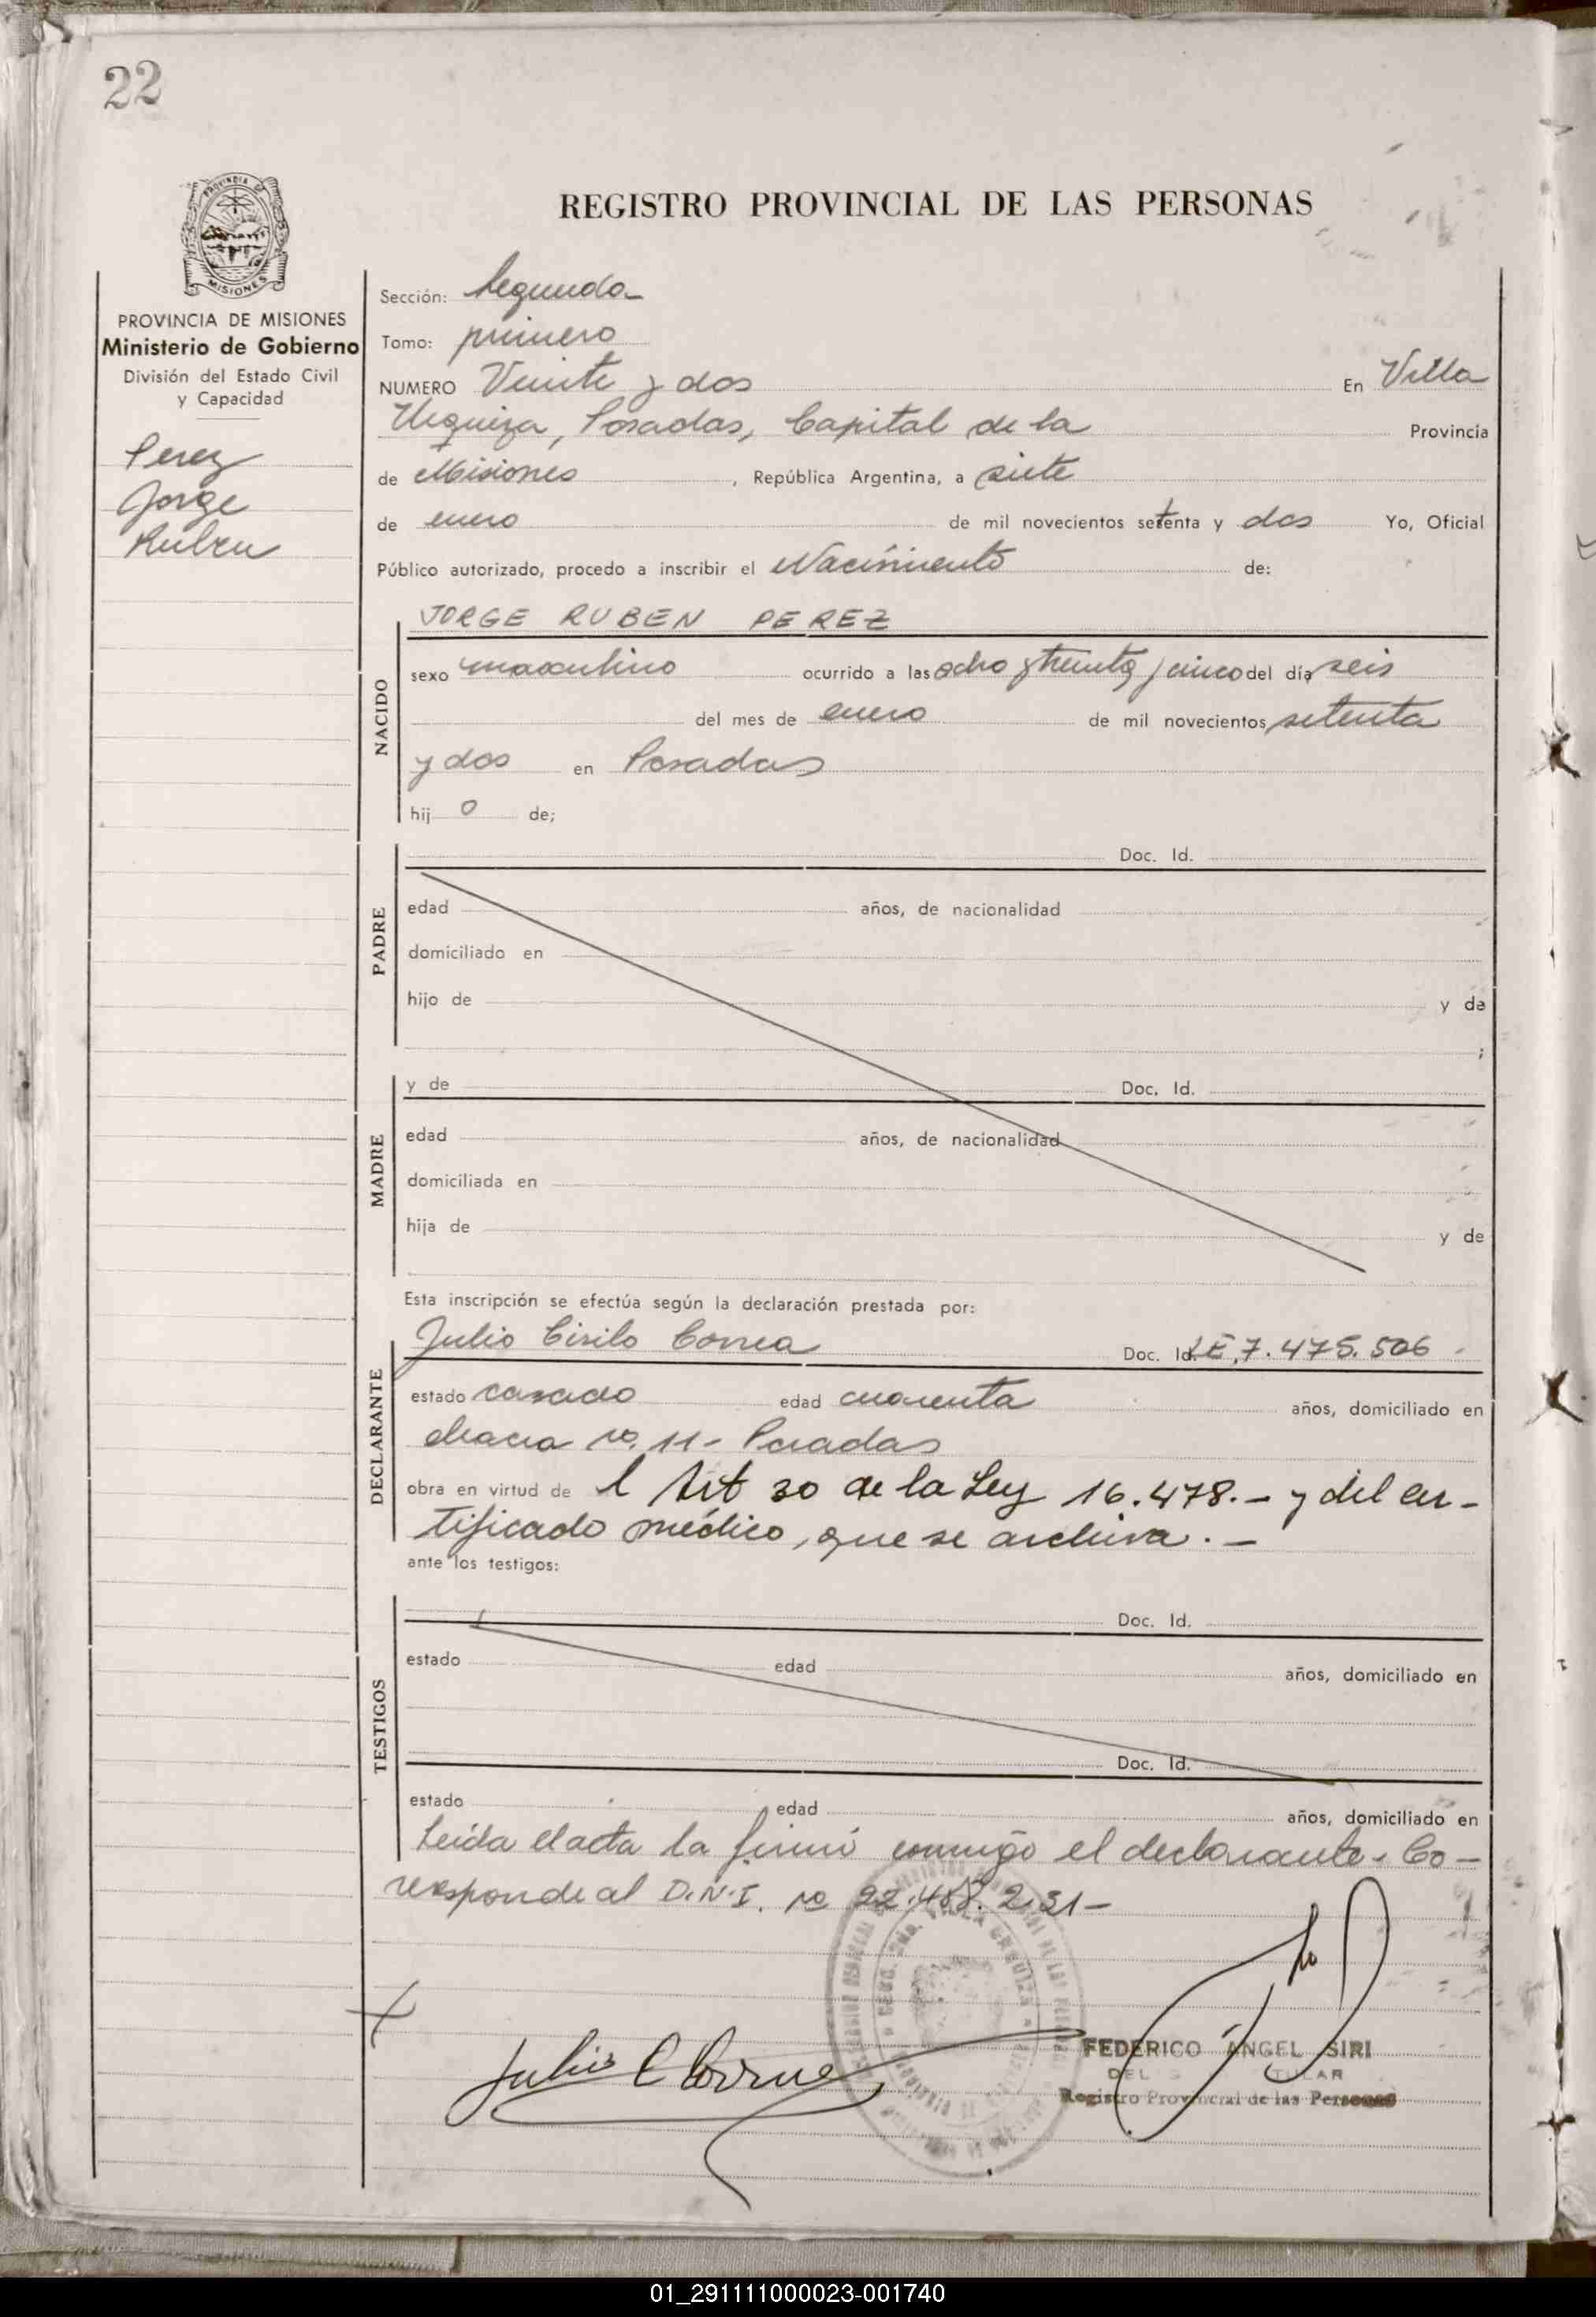 22
PROVINCIA DE
MISIONES
PROVINCIA DE MISIONES
Ministerio de Gobierno
División del Estado Civil
y Capacidad
Perez
Jorge
Ruben
REGISTRO PROVINCIAL DE LAS PERSONAS
Sección: Segunda-
Tomo: primero
NUMERO Veinte y dos En Villa
Urquiza, Posadas, Capital de la Provincia
de Misiones , República Argentina, a siete
de enero de mil novecientos setenta y dos Yo, Oficial
Público autorizado, procedo a inscribir el Nacimiento de:
NACIDO
JORGE RUBEN PEREZ
sexo masculino ocurrido a las ocho y treinta y cinco del día seis
del mes de enero de mil novecientos setenta
y dos en Posadas
hij o de;
PADRE
Doc. Id.
edad años, de nacionalidad
domiciliado en
hijo de y de
;
MADRE
y de Doc. Id.
edad años, de nacionalidad
domiciliada en
hija de y de
Esta inscripción se efectúa según la declaración prestada por:
DECLARANTE
Julio Cirilo Correa Doc. Id. LE,7.475.506
estado casado edad cuarenta años, domiciliado en
chacra no. 11- Posadas
obra en virtud de l Art 30 de la Ley 16.478.- y del cer-
tificado médico, que se archiva.-
ante los testigos:
TESTIGOS
Doc. Id.
estado edad años, domiciliado en
Doc. Id.
estado edad años, domiciliado en
Leída el acta la firmó conmigo el declarante. Co-
rresponde al D.N.I. no 22.458.231-
Julio C Correa
FEDERICO ANGEL SIRI
Registro Provincial de las Personas
01_291111000023-001740